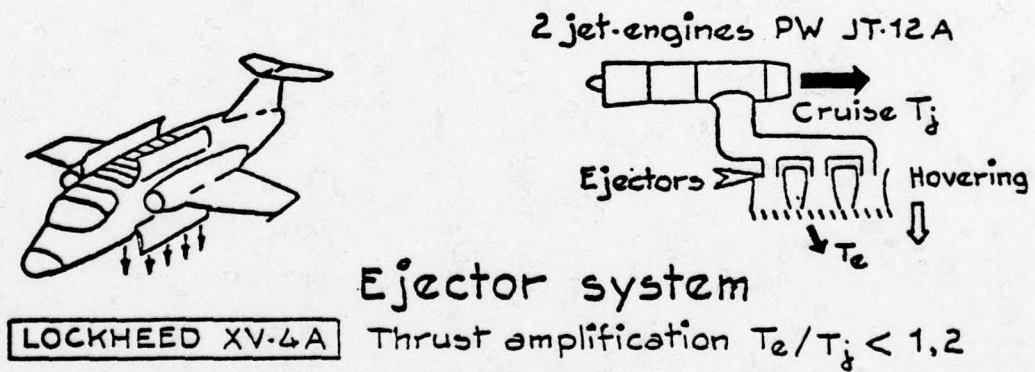 2 jet-engines PW JT-12A
Cruise Tj
Ejectors
Hovering
Te
Ejector system
LOCKHEED XV-4A
Thrust amplification Te/Tj < 1,2